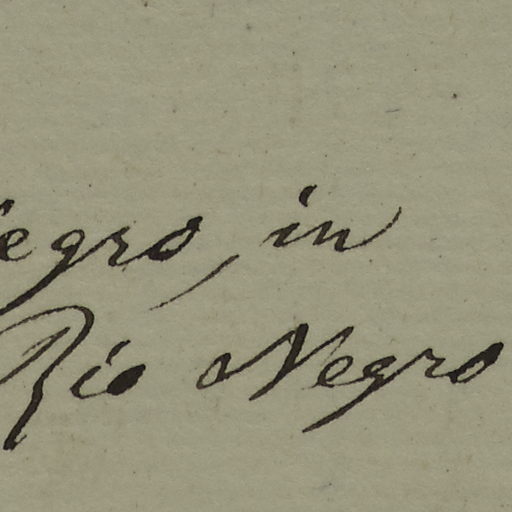 egro, in
Rio Negro